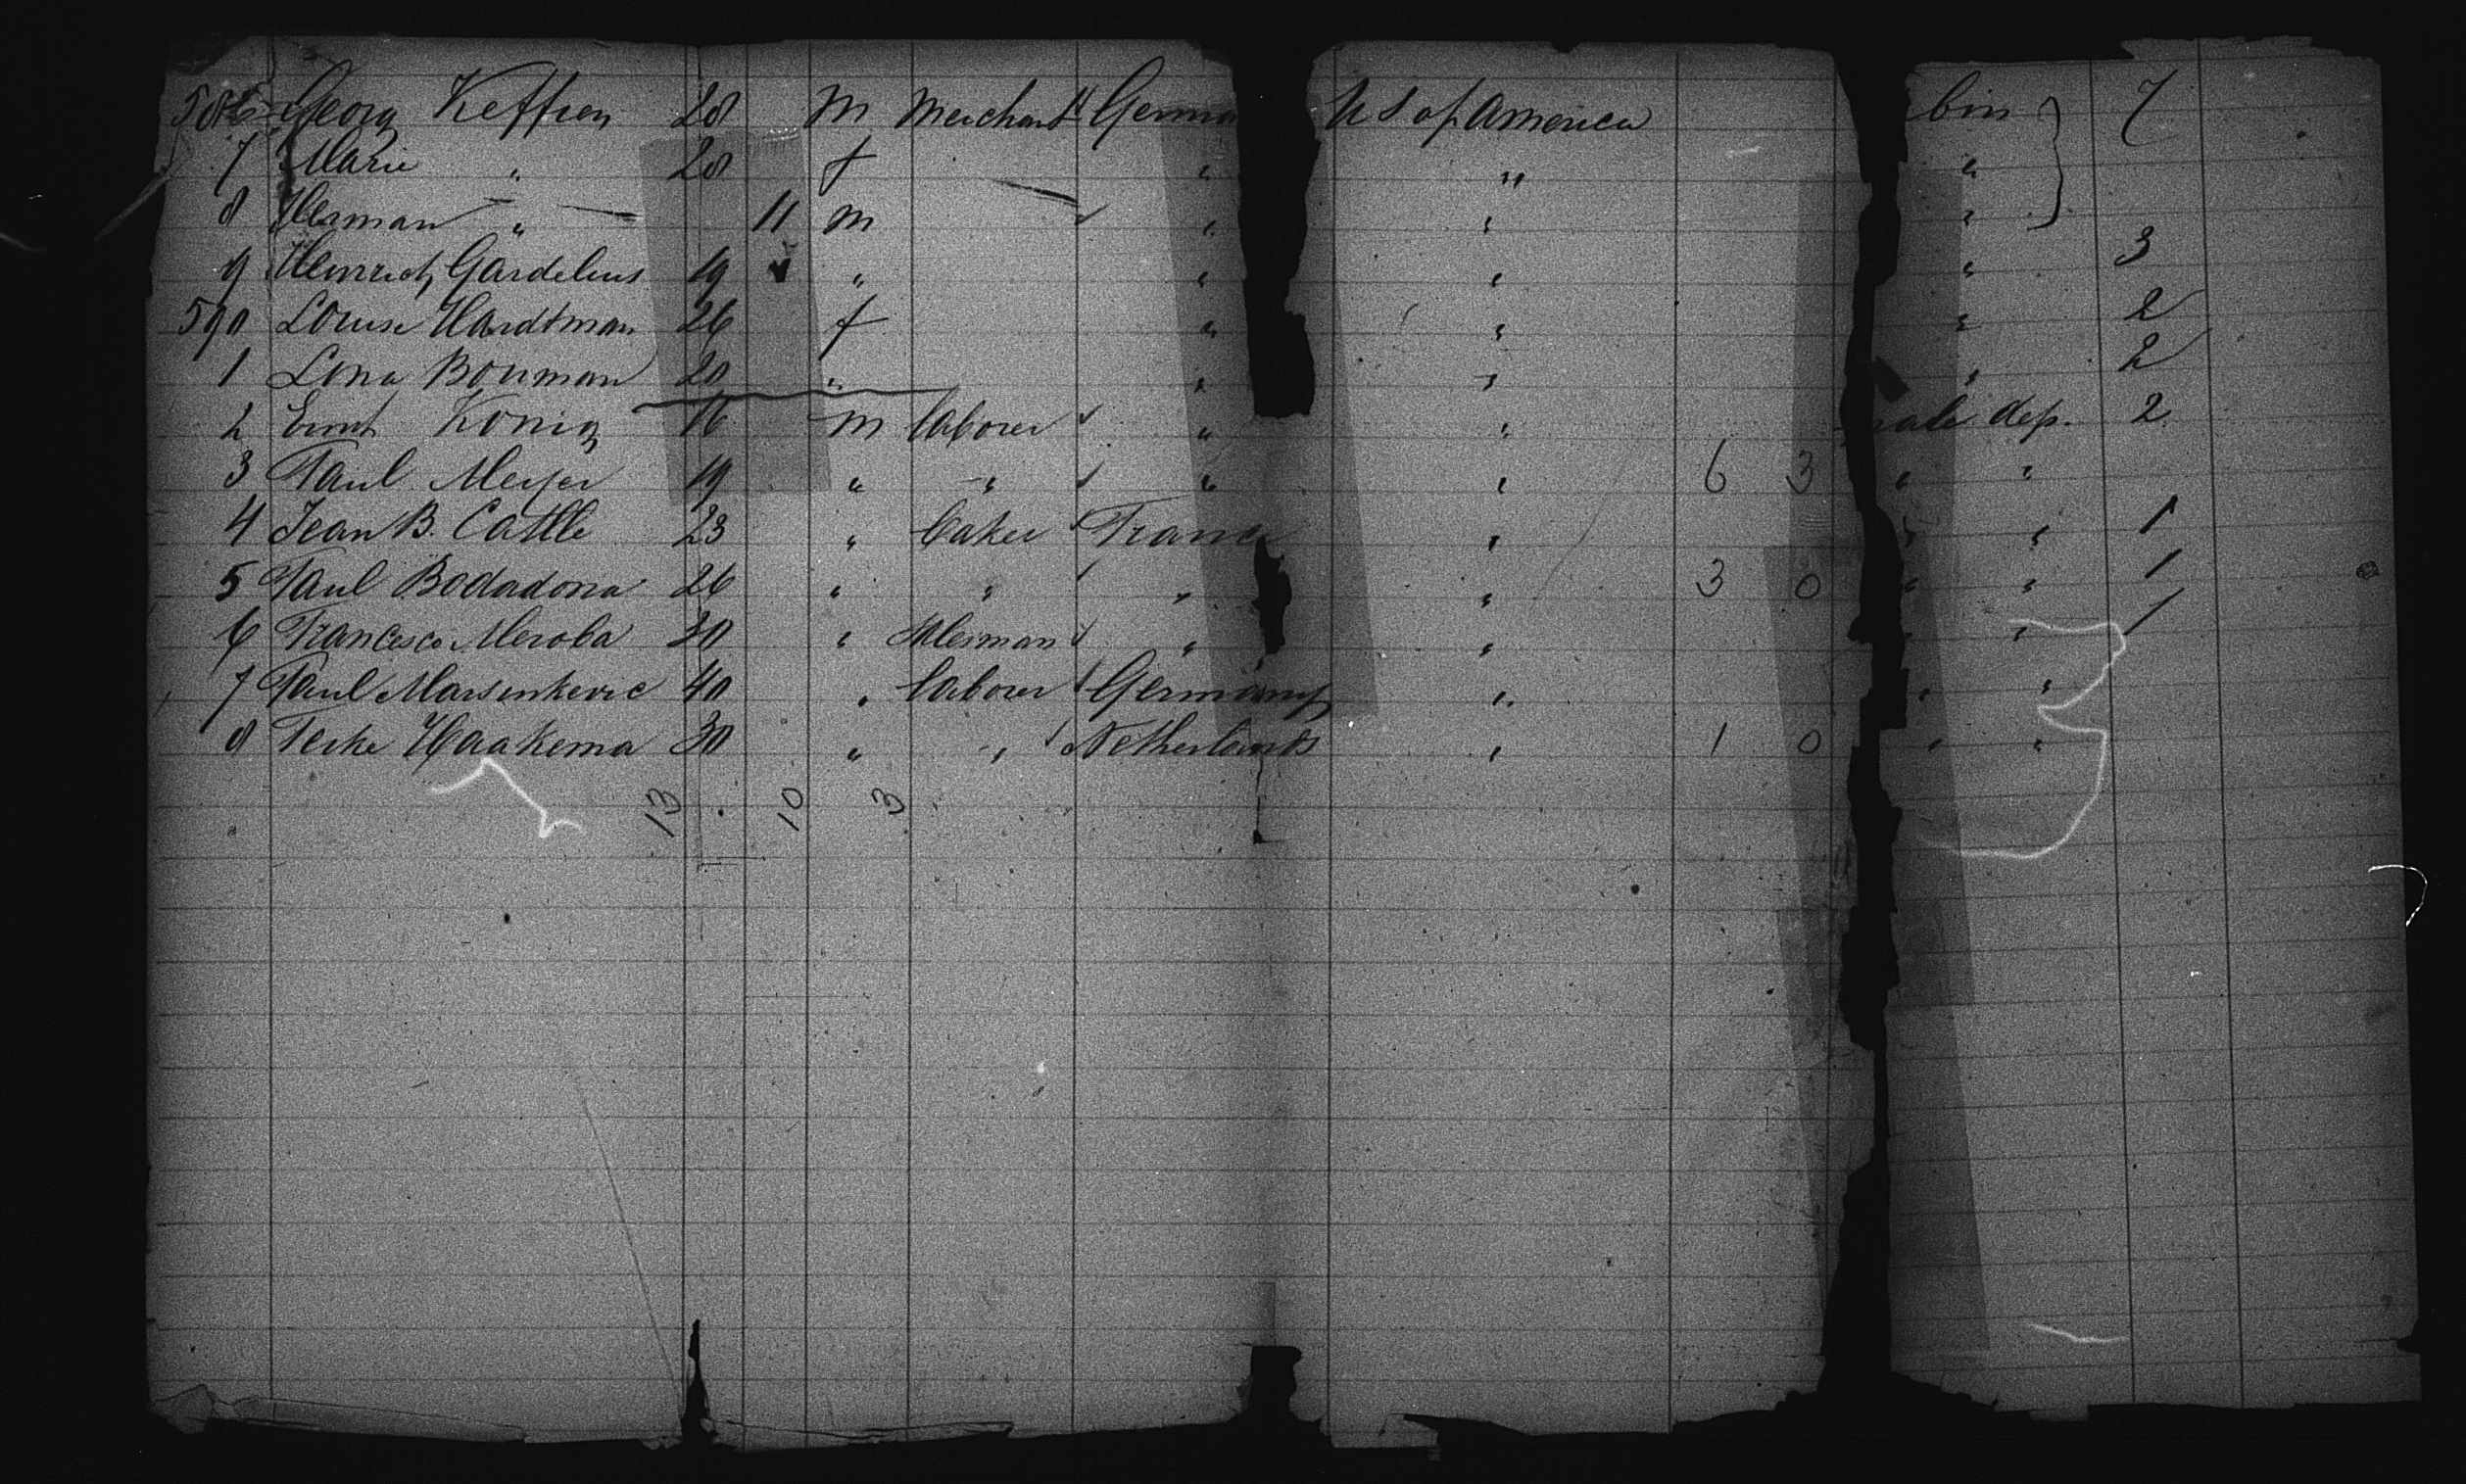 586 Georg Keffren 28 m Merchant Germa U S of America bin } 7
7 Marie " 28 f " " "
8 Herman " 11 m " " "
9 Heinrich Gardelius 19 " " " " 3
590 Louise Hardtman 26 f " " " 2
1 Lina Bouman 20 " " " " 2
2 Ernst König 16 m laborer " " male dep. 2
3 Paul Meyer 19 " " " " 6 3 " "
4 Jean B. Cattle 23 " baker France " " " 1
5 Paul Bodadona 26 " " " " 3 0 " " 1
6 Francesco Meroba 30 " Salesman " " " " 1
7 Paul Marsinkevic 40 " laborer Germany " " "
8 Feike Haakema 30 " " Netherlands " 1 0 " "
13 10 3